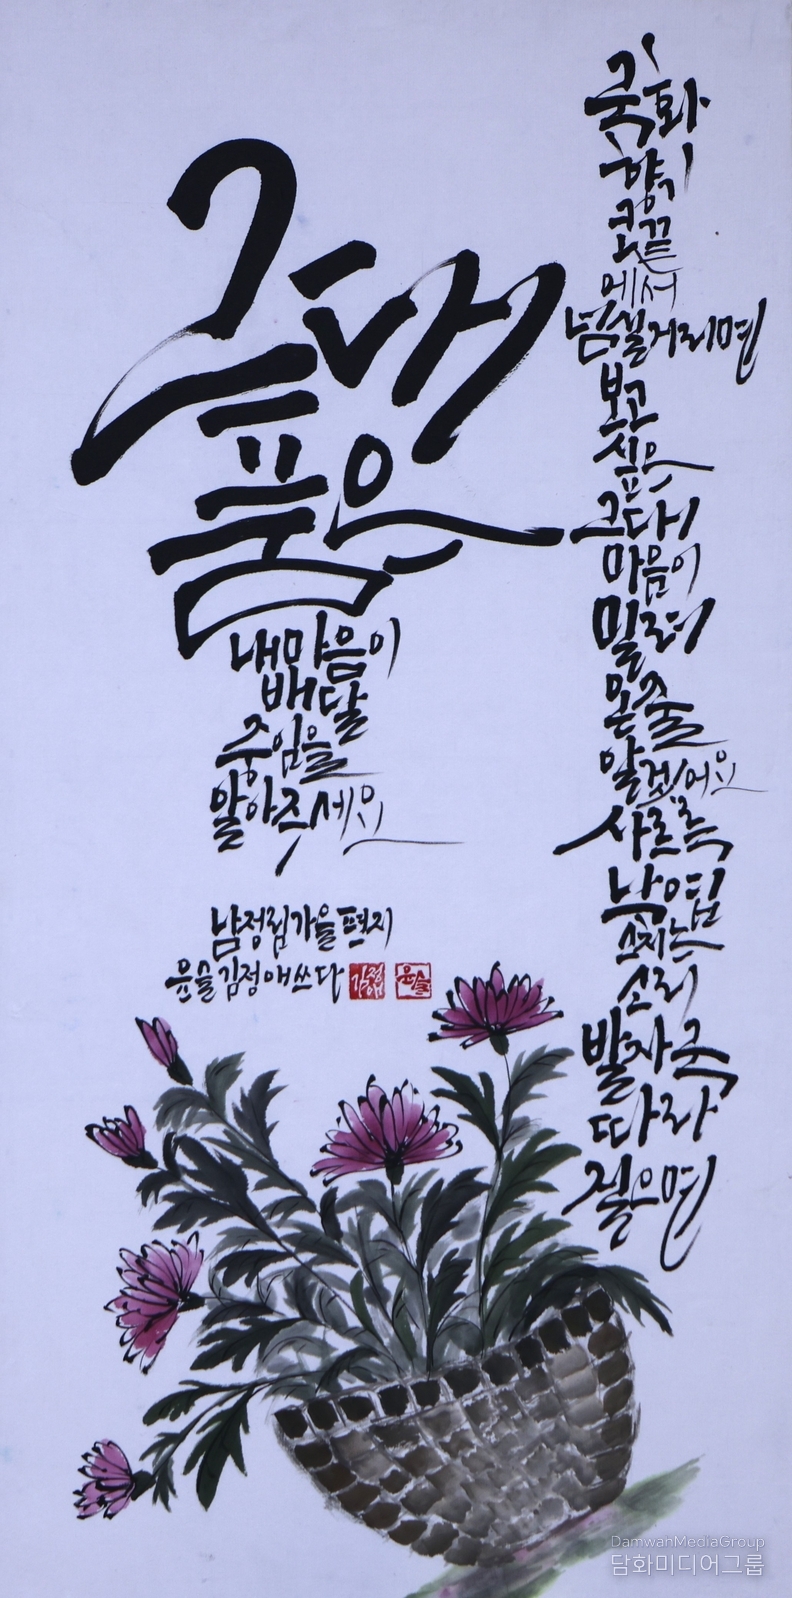 국화
향기
코끝
에서
넘실거리면
보고
싶은
그대
마음이
밀려
온줄
알겠어요
사르륵
낙엽
스치는
소리
발자국
따라
짙으면
그대
품은
내마음이
배달
중임을
알아주세요
남정림가을편지
윤슬김정애쓰다
김정애
윤슬
DamwanMediaGroup
담화미디어그룹